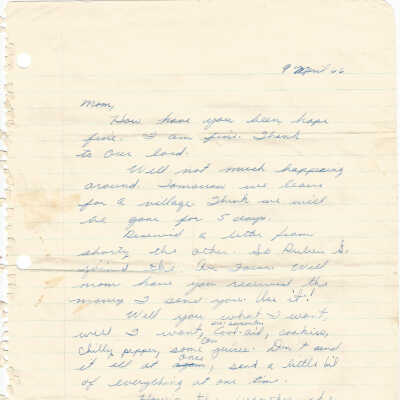 9 April 66
Mom,
How have you been hope
fine. I am fine. Thank
to Our lord.
Well not much happening
around. Tomorrow we leave
for a village Think we will
be gone for 5 days.
Received a letter from
shorty the other. So Ruben is
the Air Force. Well
mom have you received the
money I send you. Use it!
Well you what I want
well I want, Cool-aid, cookies,
Chilly pepper, some juices. Don't send
it all at once, send a little bit
of everything at one time.